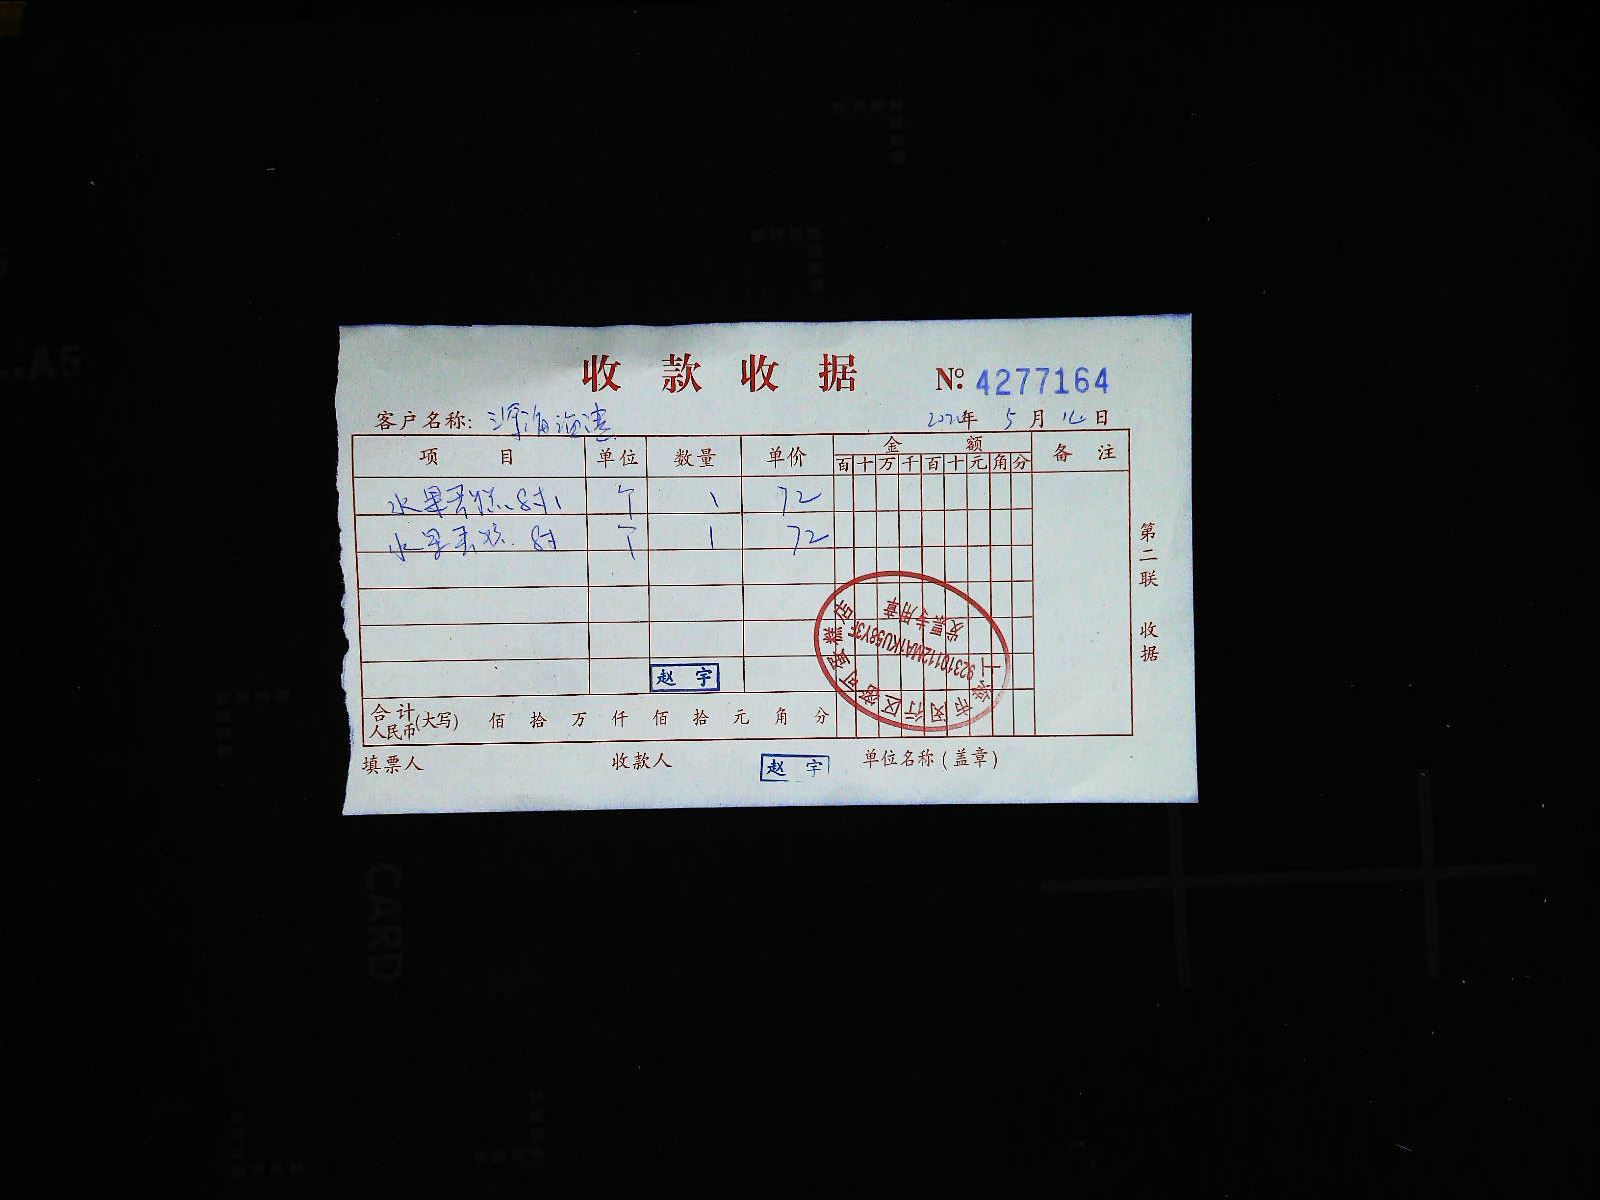 收款收据 №: 4277164
客户名称: 深海海湾
年 5 月 日
项目 单位 数量 单价 金额 备注
百 十 万 千 百 十 元 角 分
水果蛋糕 8寸 个 1 72
水果蛋糕 8寸 个 1 72
赵宇
合计人民币(大写) 佰 拾 万 仟 佰 拾 元 角 分
填票人 收款人 赵宇 单位名称(盖章)
第二联 收据
市闵行区 蛋糕店
92310112MA1KU58Y3F
发票专用章
CARD
A5